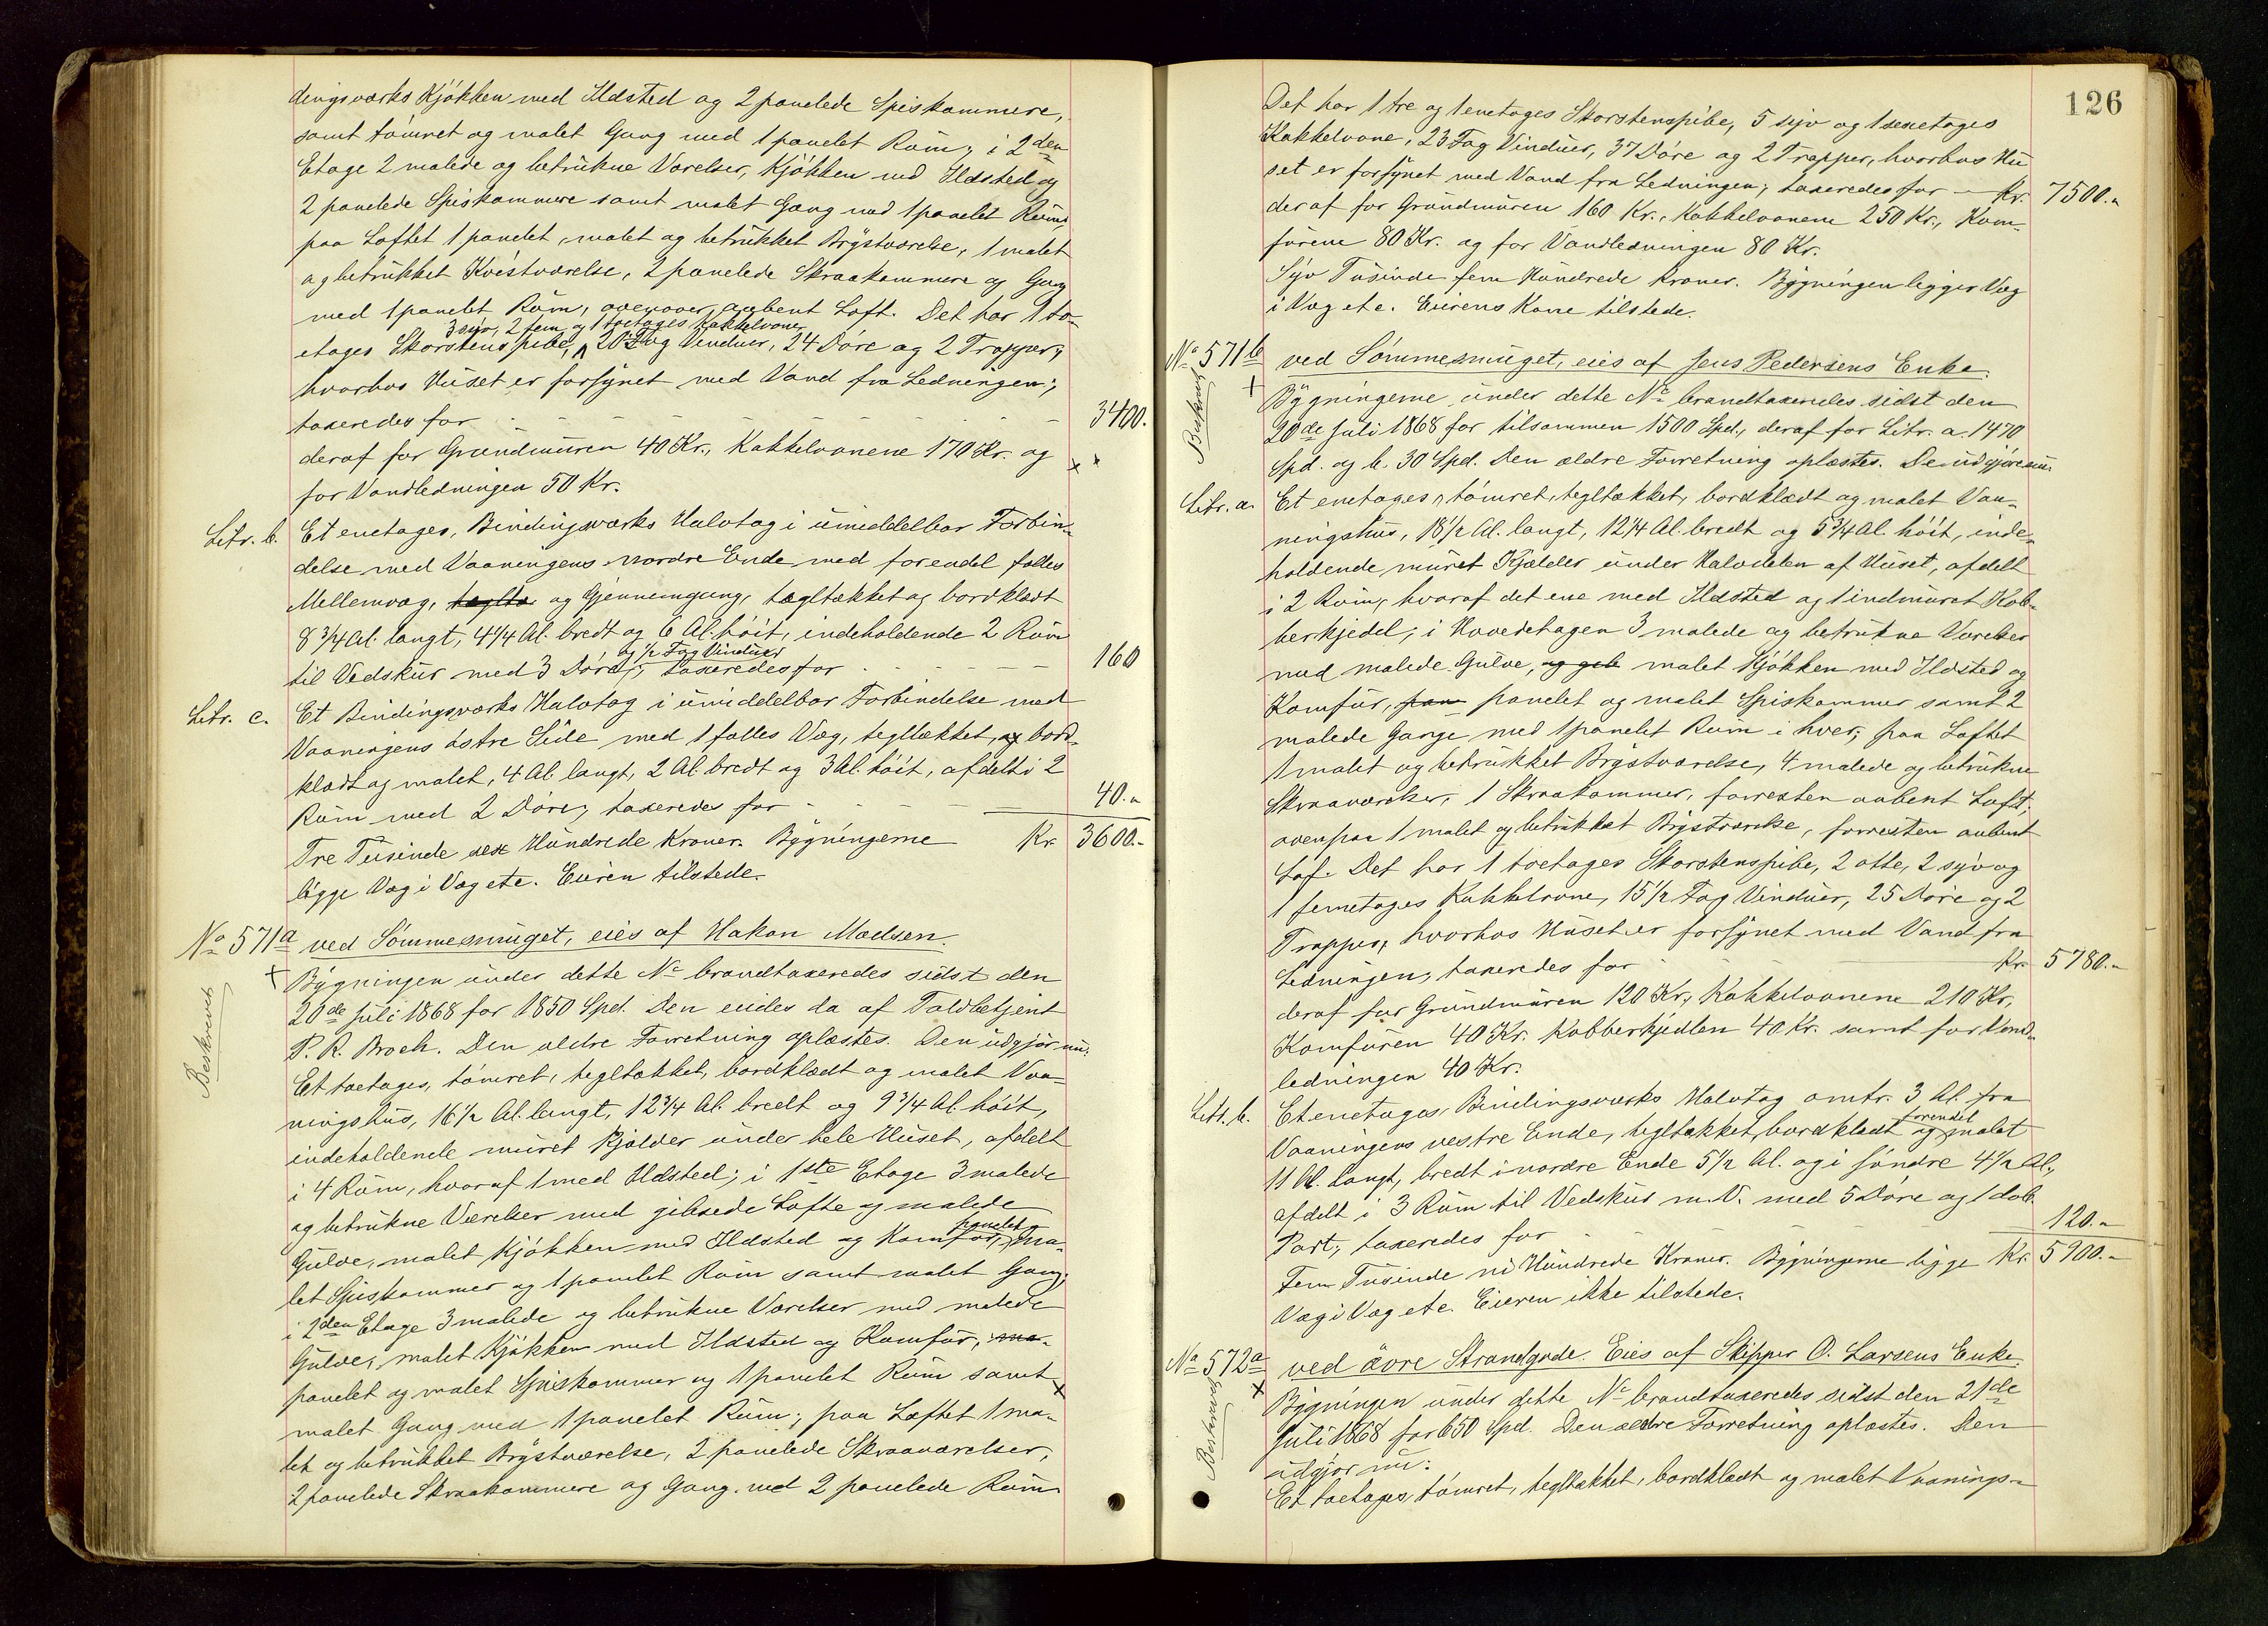 dingsværks Kjökken med Ildsted og 2 panelede Spiskammere,
samt tömret og malet Gang med 1 panelet Rüm; i 2den
Etage 2 malede og betrükne Værelser, Kjökken med Ildsted og
2 panelede Spiskammere samt malet Gang med 1 panelet Rüm,
paa Loftet 1 panelet, malet og betrükket Brÿstværelse, 1 malet
og betrükket Kvistværelse, 2 panelede Skraakammere og Gang
med 1 panelet Rüm, ovenover aabent Loft. Det har 1 to-
3 syv, 2 fem og 1 toetages Kakkelovne
etages Skorstenspibe, 20 Fag Vinduer, 24 Döre og 2 Trapper,
hvorhos Hüset er forsÿnet med Vand fra Ledningen;
taxeredes for 3400.
deraf for Gründmüren 40 Kr., Kakkelovnene 170 Kr. og
for Vandledningen 50 Kr.
Litr. b. Et enetages, Bindingsværks Halvtag i ümiddelbar Forbin-
delse med Vaaningens nordre Ende med forendel fælles
Mellemvæg, teglta og Gjennemgang, tægltækket og bordklædt
8 3/4 Al. langt, 4 1/4 Al. bredt og 6 Al. höit, indeholdende 2 Rüm
og 1/2 Fag Vindüer
til Vedskür med 3 Döre; taxeredes for 160
Litr. c. Et Bindingsværks Halvtag i ümiddelbar Forbindelse med
Vaaningens östre Side med 1 fælles Væg, tegltækket, og bord-
klædt og malet, 4 Al. langt, 2 Al. bredt og 3 Al. höit, afdelt i 2
Rüm med 2 Döre; taxeredes for 40.-
Tre Tüsinde sex Hündrede Kroner. Bÿgningerne Kr. 3600.-
ligge Væg i Væg etc. Eieren tilstede.
No 571a ved Sömmesmüget, eies af Hakon Madsen.
Beskrevet
Bÿgningen ünder dette No brandtaxeredes sidst den
20de Jüli 1868 for 1850 Spd. Den eiedes da af Toldbetjent
P. R. Broch. Den ældre Forretning oplæstes. Den üdgjör nü:
Et toetages, tömret, tegltækket, bordklædt og malet Vaa-
ningshüs, 16 1/2 Al. langt, 12 3/4 Al. bredt og 9 3/4 Al. höit,
indeholdende müret Kjælder ünder hele Hüset, afdelt
i 4 Rüm, hvoraf 1 med Ildsted; i 1ste Etage 3 malede
og betrükne Værelser med gibsede Lofte og malede
panelet
Gülve, malet Kjökken med Ildsted og Komfür, ma-
let Spiskammer og 1 panelet Rüm samt malet Gang;
i 2den Etage 3 malede og betrükne Værelser med malede
Gülve, malet Kjökken med Ildsted og Komfür, ma-
panelet og malet Spiskammer og 1 panelet Rüm samt
malet Gang med 1 panelet Rüm; paa Loftet 1 ma-
let og betrükket Brÿstværelse, 2 panelede Skraaværelser,
2 panelede Skraakammere og Gang med 2 panelede Rüm
126
Det har 1 tre og 1 enetages Skorstenspibe, 5 syv og 1 sexetages
Kakkelovne, 23 Fag Vindüer, 37 Döre og 2 Trapper, hvorhos Hü
set er forsÿnet med Vand fra Ledningen; taxeredes for Kr. 7500.-
deraf for Gründmüren 160 Kr., Kakkelovnene 250 Kr., Kom-
fürene 80 Kr. og for Vandledningen 80 Kr.
Sÿv Tüsinde fem Hündrede Kroner. Bÿgningen ligger Væg
i Væg etc. Eierens Kone tilstede.
No 571b ved Sömmesmüget, eies af Jens Pedersens Enke.
Beskrevet
Bÿgningerne ünder dette No brandtaxeredes sidst den
20de Jüli 1868 for tilsammen 1500 Spd., deraf for Litr. a. 1470
Spd. og b. 30 Spd. Den ældre Forretning oplæstes. De üdgjöre nü:
Litr. a. Et enetages, tömret, tegltækket, bordklædt og malet Vaa-
ningshüs, 18 1/2 Al. langt, 12 1/4 Al. bredt og 5 3/4 Al. höit, inde-
holdende müret Kjælder ünder Halvdelen af Hüset, afdelt
i 2 Rüm, hvoraf det ene med Ildsted og 1 indmüret Kob-
berkjedel; i Hovedetagen 3 malede og betrükne Værelser
med malede Gülve, og gib malet Kjökken med Ildsted og
Komfür, pan panelet og malet Spiskammer samt 2
malede Gange med 1 panelet Rüm i hver; paa Loftet
1 malet og betrükket Brÿstværelse, 4 malede og betrükne
Skraaværelser, 1 Skraakammer, forresten aabent Loft;
ovenpaa 1 malet og betrükket Brÿstværelse, forresten aabent
Lof. Det har 1 toetages Skorstenspibe, 2 otte, 2 sÿv og
1 femetages Kakkelovne, 15 1/2 Fag Vindüer, 25 Döre og 2
Trapper, hvorhos Hüset er forsÿnet med Vand fra
Ledningen; taxeredes for Kr. 5780.-
deraf for Gründmüren 120 Kr., Kakkelovnene 210 Kr.,
Komfüren 40 Kr. Kobberkjedlen 40 Kr. samt for Vand-
ledningen 40 Kr.
Litr. b. Et enetages, Bindingsværks Halvtag omtr. 3 Al. fra
forendel
Vaaningens vestre Ende, tegltækket, bordklædt og malet
11 Al. langt, bredt i nordre Ende 5 1/2 Al. og i söndre 4 1/2 Al.,
afdelt i 3 Rüm til Vedskür m.V. med 5 Döre og 1 dob.
Port; taxeredes for 120.-
Fem Tüsinde ni Hündrede Kroner. Bÿgningerne ligge Kr. 5900.-
Væg i Væg etc. Eieren ikke tilstede.
No 572a ved övre Strandgade. Eies af Skipper O. Larsens Enke.
Beskrevet
Bÿgningen ünder dette No brandtaxeredes sidst den 21de
Jüli 1868 for 650 Spd. Den ældre Forretning oplæstes. Den
üdgjör nü:
Et toetages, tömret, tegltækket, bordklædt og malet Vaanings-